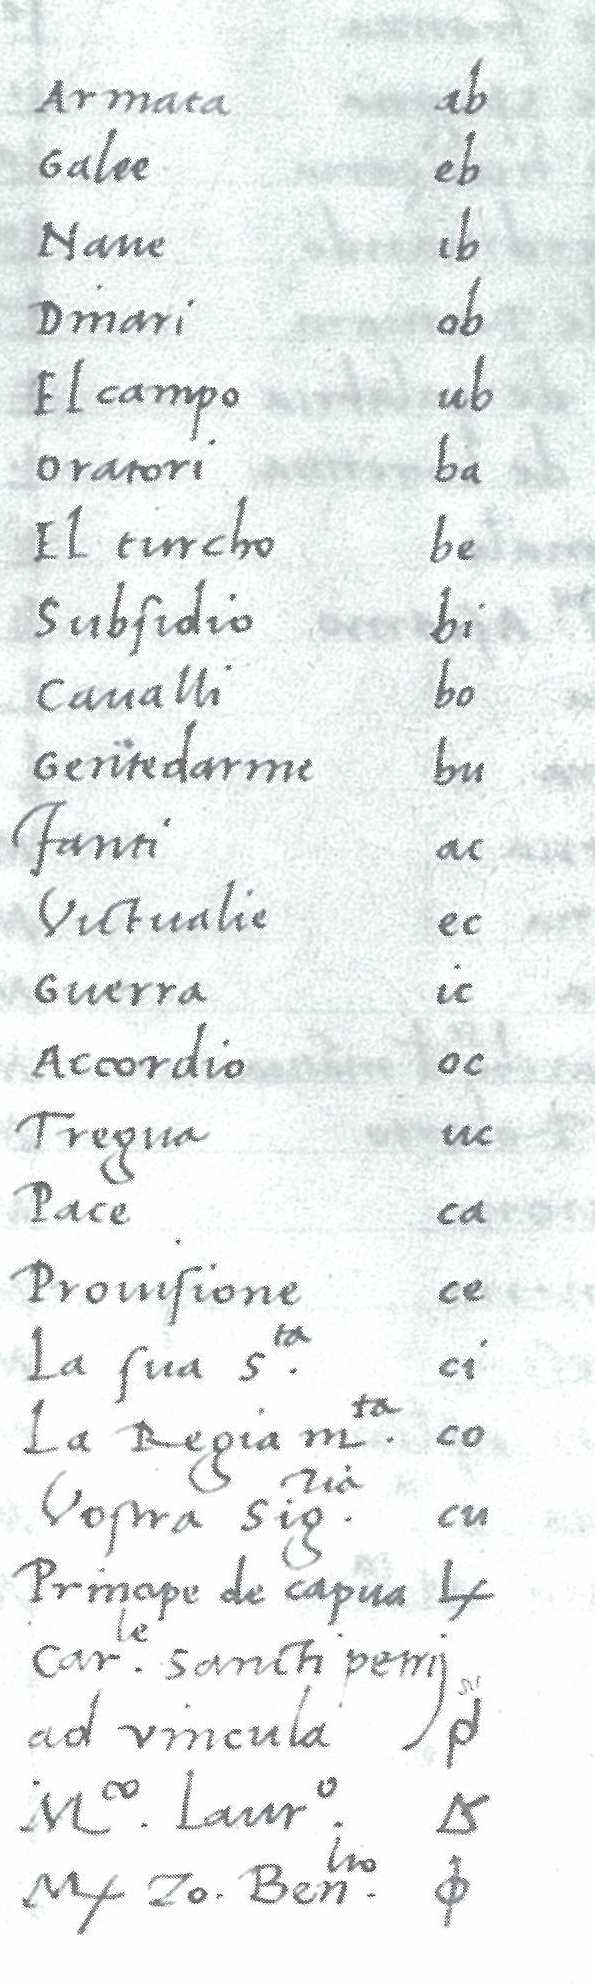 Armata ab
Galee eb
Naue ib
Dinari ob
El campo ub
Oratori ba
El turcho be
Subsidio bi
Caualli bo
Gentedarme bu
Fanti ac
Victualie ec
Guerra ic
Accordio oc
Tregua uc
Pace ca
Prouisione ce
La sua S.ta ci
La Regia m.ta co
Vostra Sig.ria cu
Principe de capua
Car.le Sancti petri
ad vincula
M.co Laur.o
Zo. Ben.lio ϕ